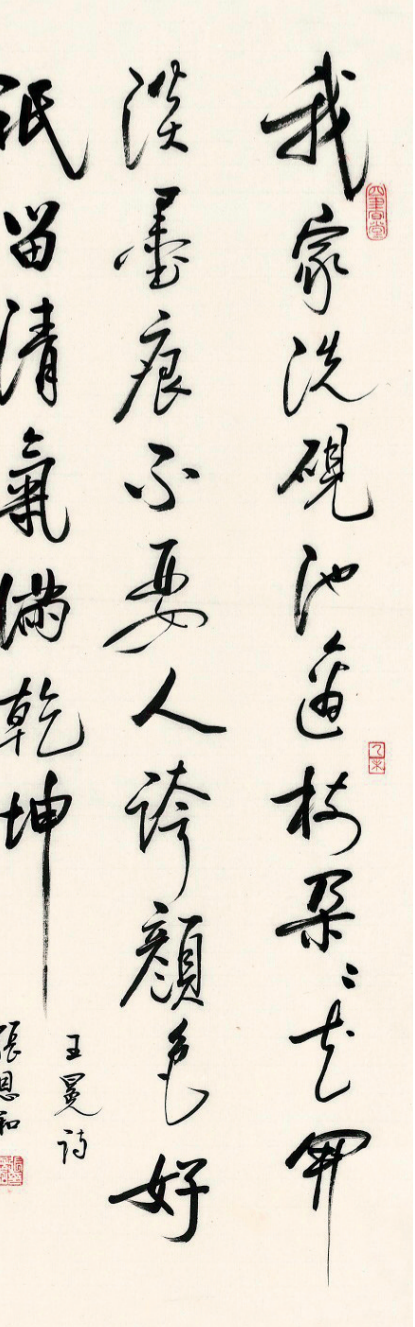 我家洗硯池邊树朵〻花開
淡墨痕不要人誇顏色好
祇留清氣滿乾坤
王冕詩
張恩和
乙未